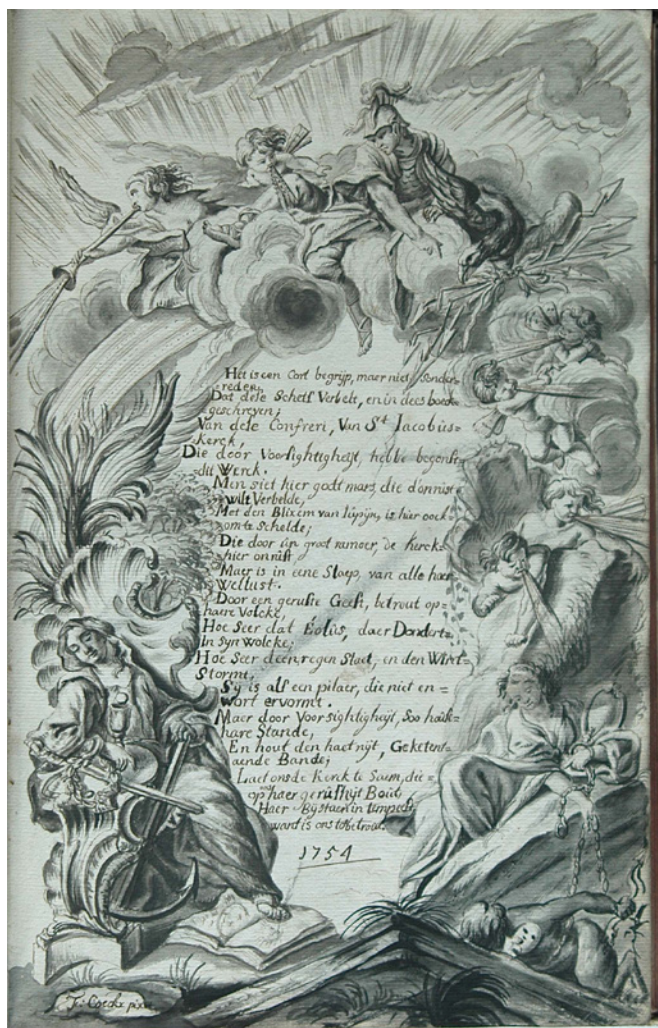 Het is een Cort begrijp, maer niet sonder
reden,
Dat dese Schets Verbelt, en in dees boeck
geschreven;
Van dese Confreri, Van St Jacobus=
Kerck,
Die door Voorsightigheijt, hebbe begonse
dit Werck.
Men siet hier godt mars, die d'onrust
wilt Verbelde,
Met den Blixem van Jupijn, is hier oock
om te schelde;
Die door sijn groot rumoer, de Kerck=
hier onrust
Maer is in eene Slaep, van alle haer
Wellust.
Door een geruste Geest, betrout op=
haere Volcke,
Hoe Seer dat Eolus, daer Dondert=
In syn Wolcke;
Hoe Seer deen regen Slaet, en den Wint=
Stormt,
Sij is alsf een pilaer, die niet en=
Wort ervormt.
Maer door Voorsightigheijt, Soo
hare Stande,
En hout den haet nijt, Geketent=
aende Bande;
Laet ons de Kerck te Saem, die=
op haer
Haer Bijstaen in tempeest
want is ons
1754
pixit